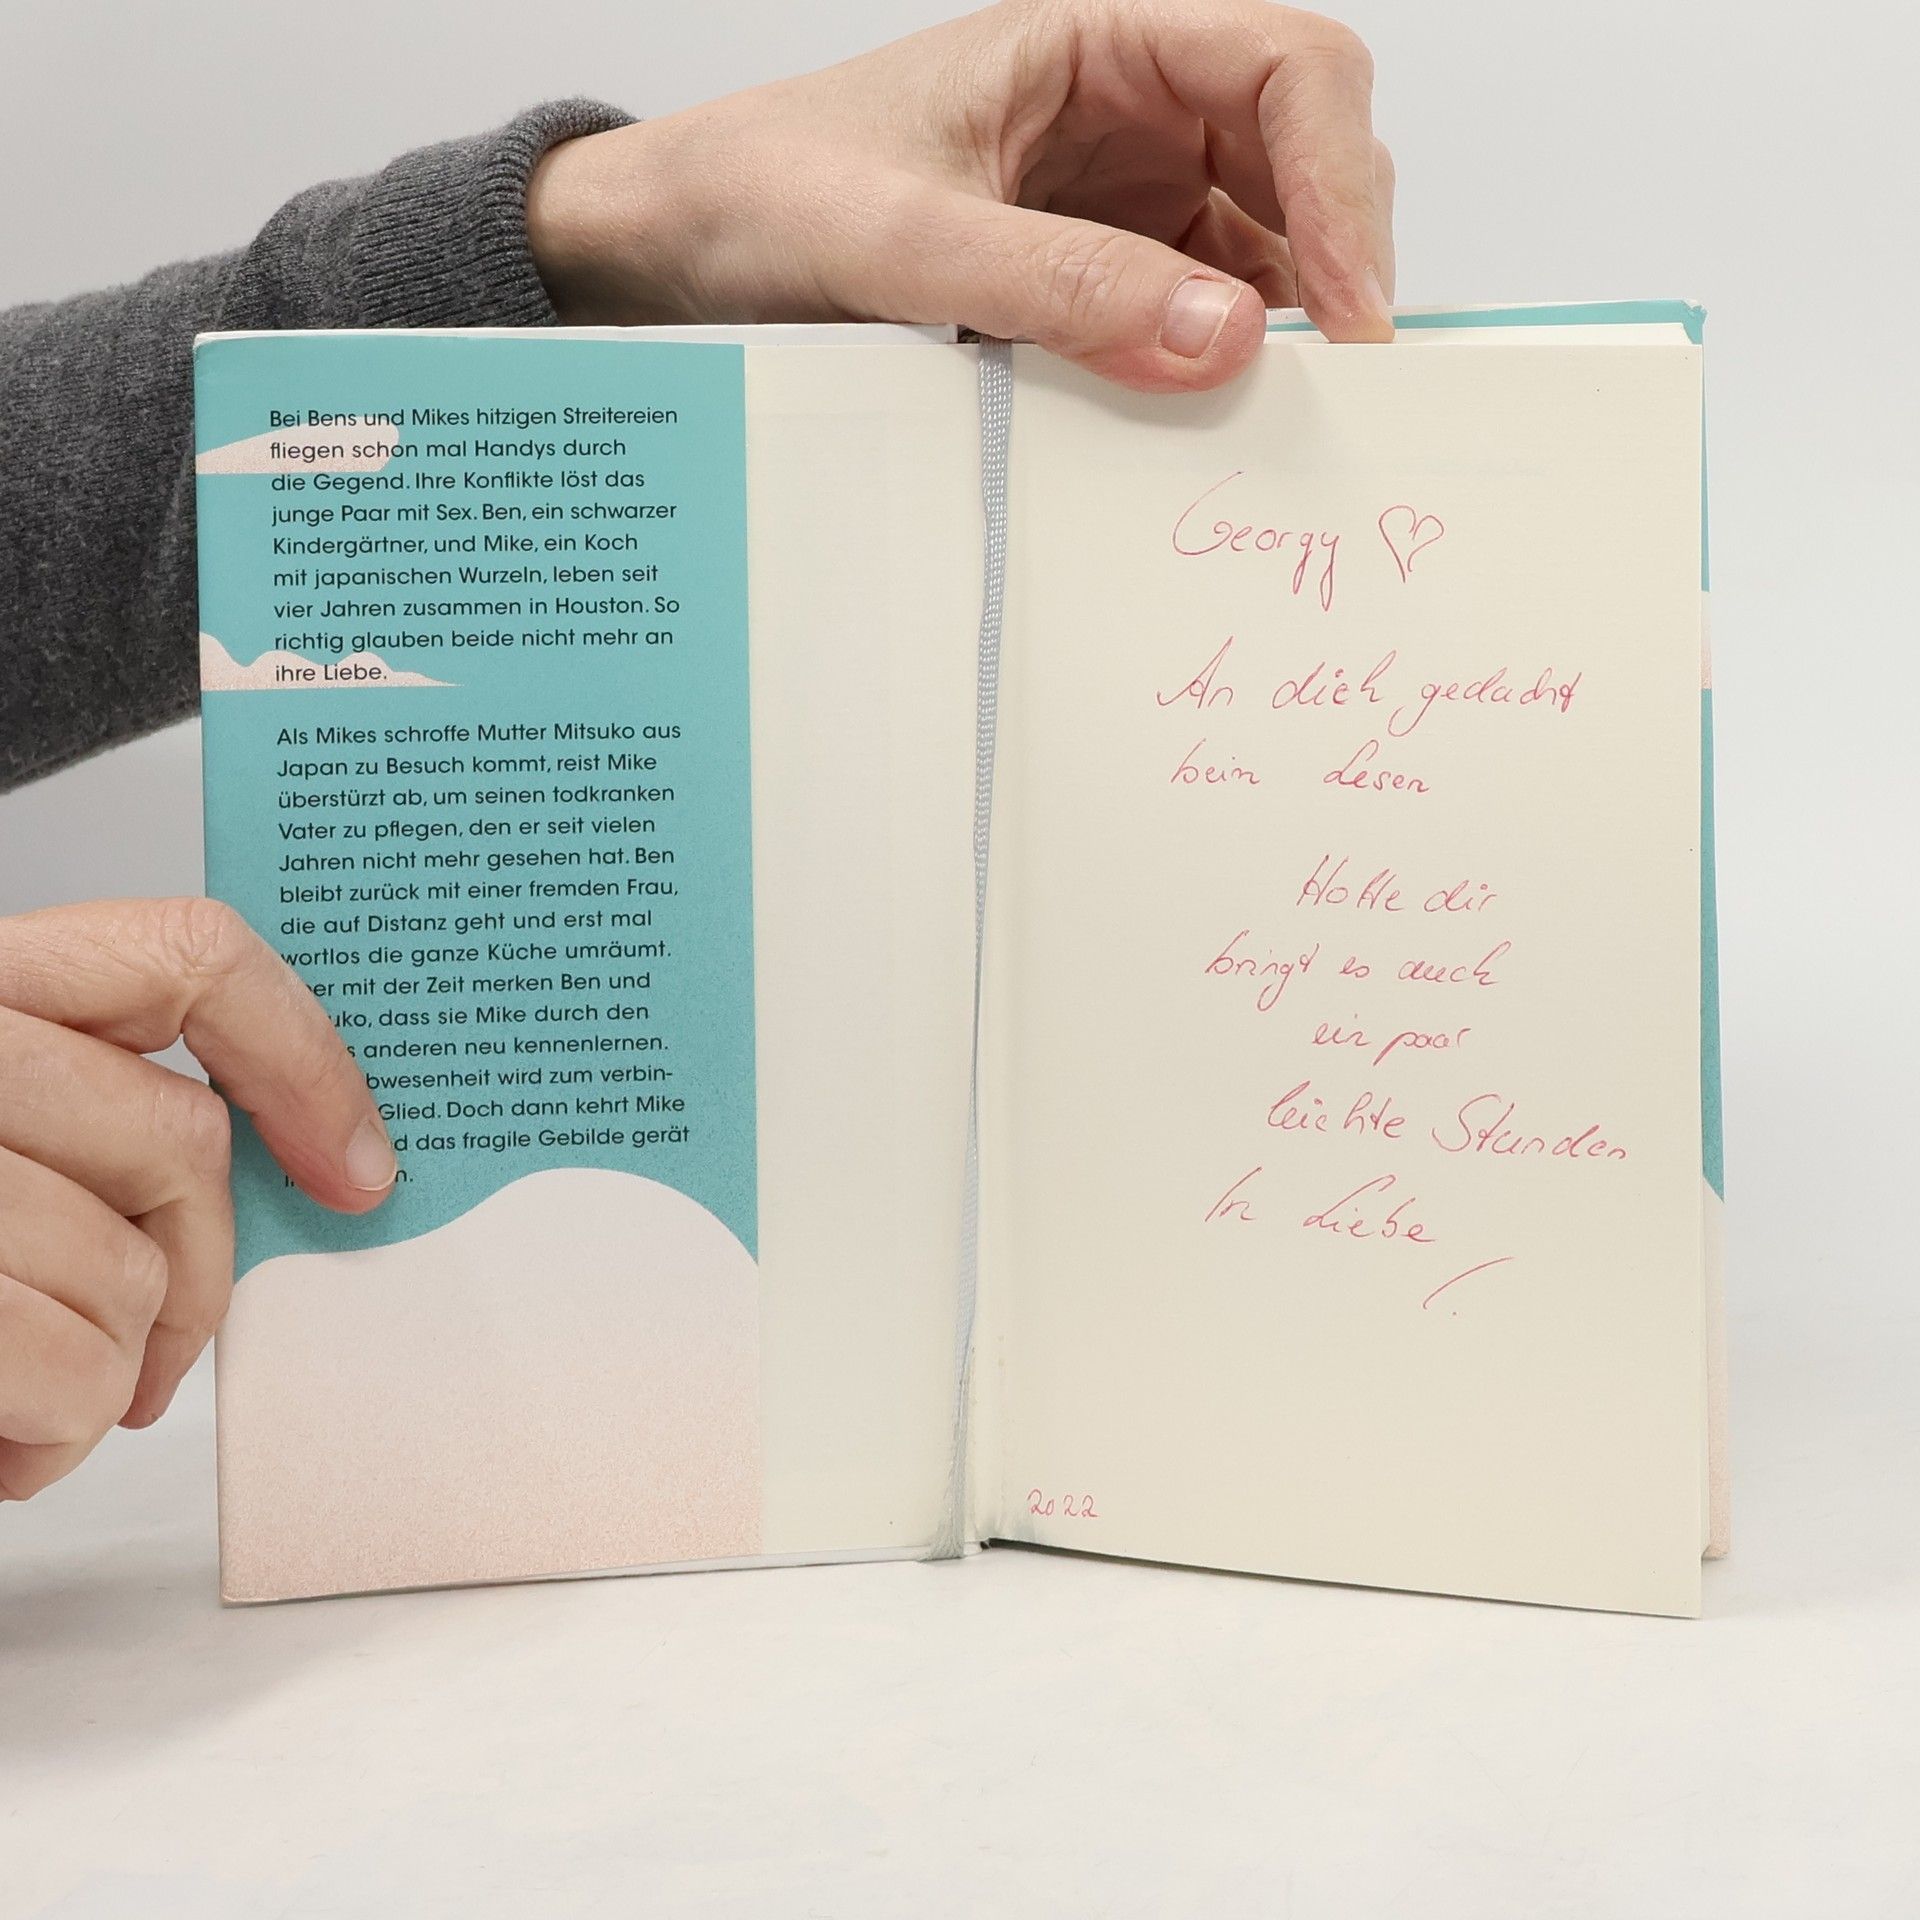 Bei Bens und Mikes hitzigen Streitereien
fliegen schon mal Handys durch
die Gegend. Ihre Konflikte löst das
junge Paar mit Sex. Ben, ein schwarzer
Kindergärtner, und Mike, ein Koch
mit japanischen Wurzeln, leben seit
vier Jahren zusammen in Houston. So
richtig glauben beide nicht mehr an
ihre Liebe.
Als Mikes schroffe Mutter Mitsuko aus
Japan zu Besuch kommt, reist Mike
überstürzt ab, um seinen todkranken
Vater zu pflegen, den er seit vielen
Jahren nicht mehr gesehen hat. Ben
bleibt zurück mit einer fremden Frau,
die auf Distanz geht und erst mal
wortlos die ganze Küche umräumt.
mit der Zeit merken Ben und
dass sie Mike durch den
anderen neu kennenlernen.
wird zum verbin-
Glied. Doch dann kehrt Mike
das fragile Gebilde gerät
Georgy
An dich gedacht
beim Lesen
Hoffe dir
bringt es auch
ein paar
leichte Stunden
In Liebe
2022